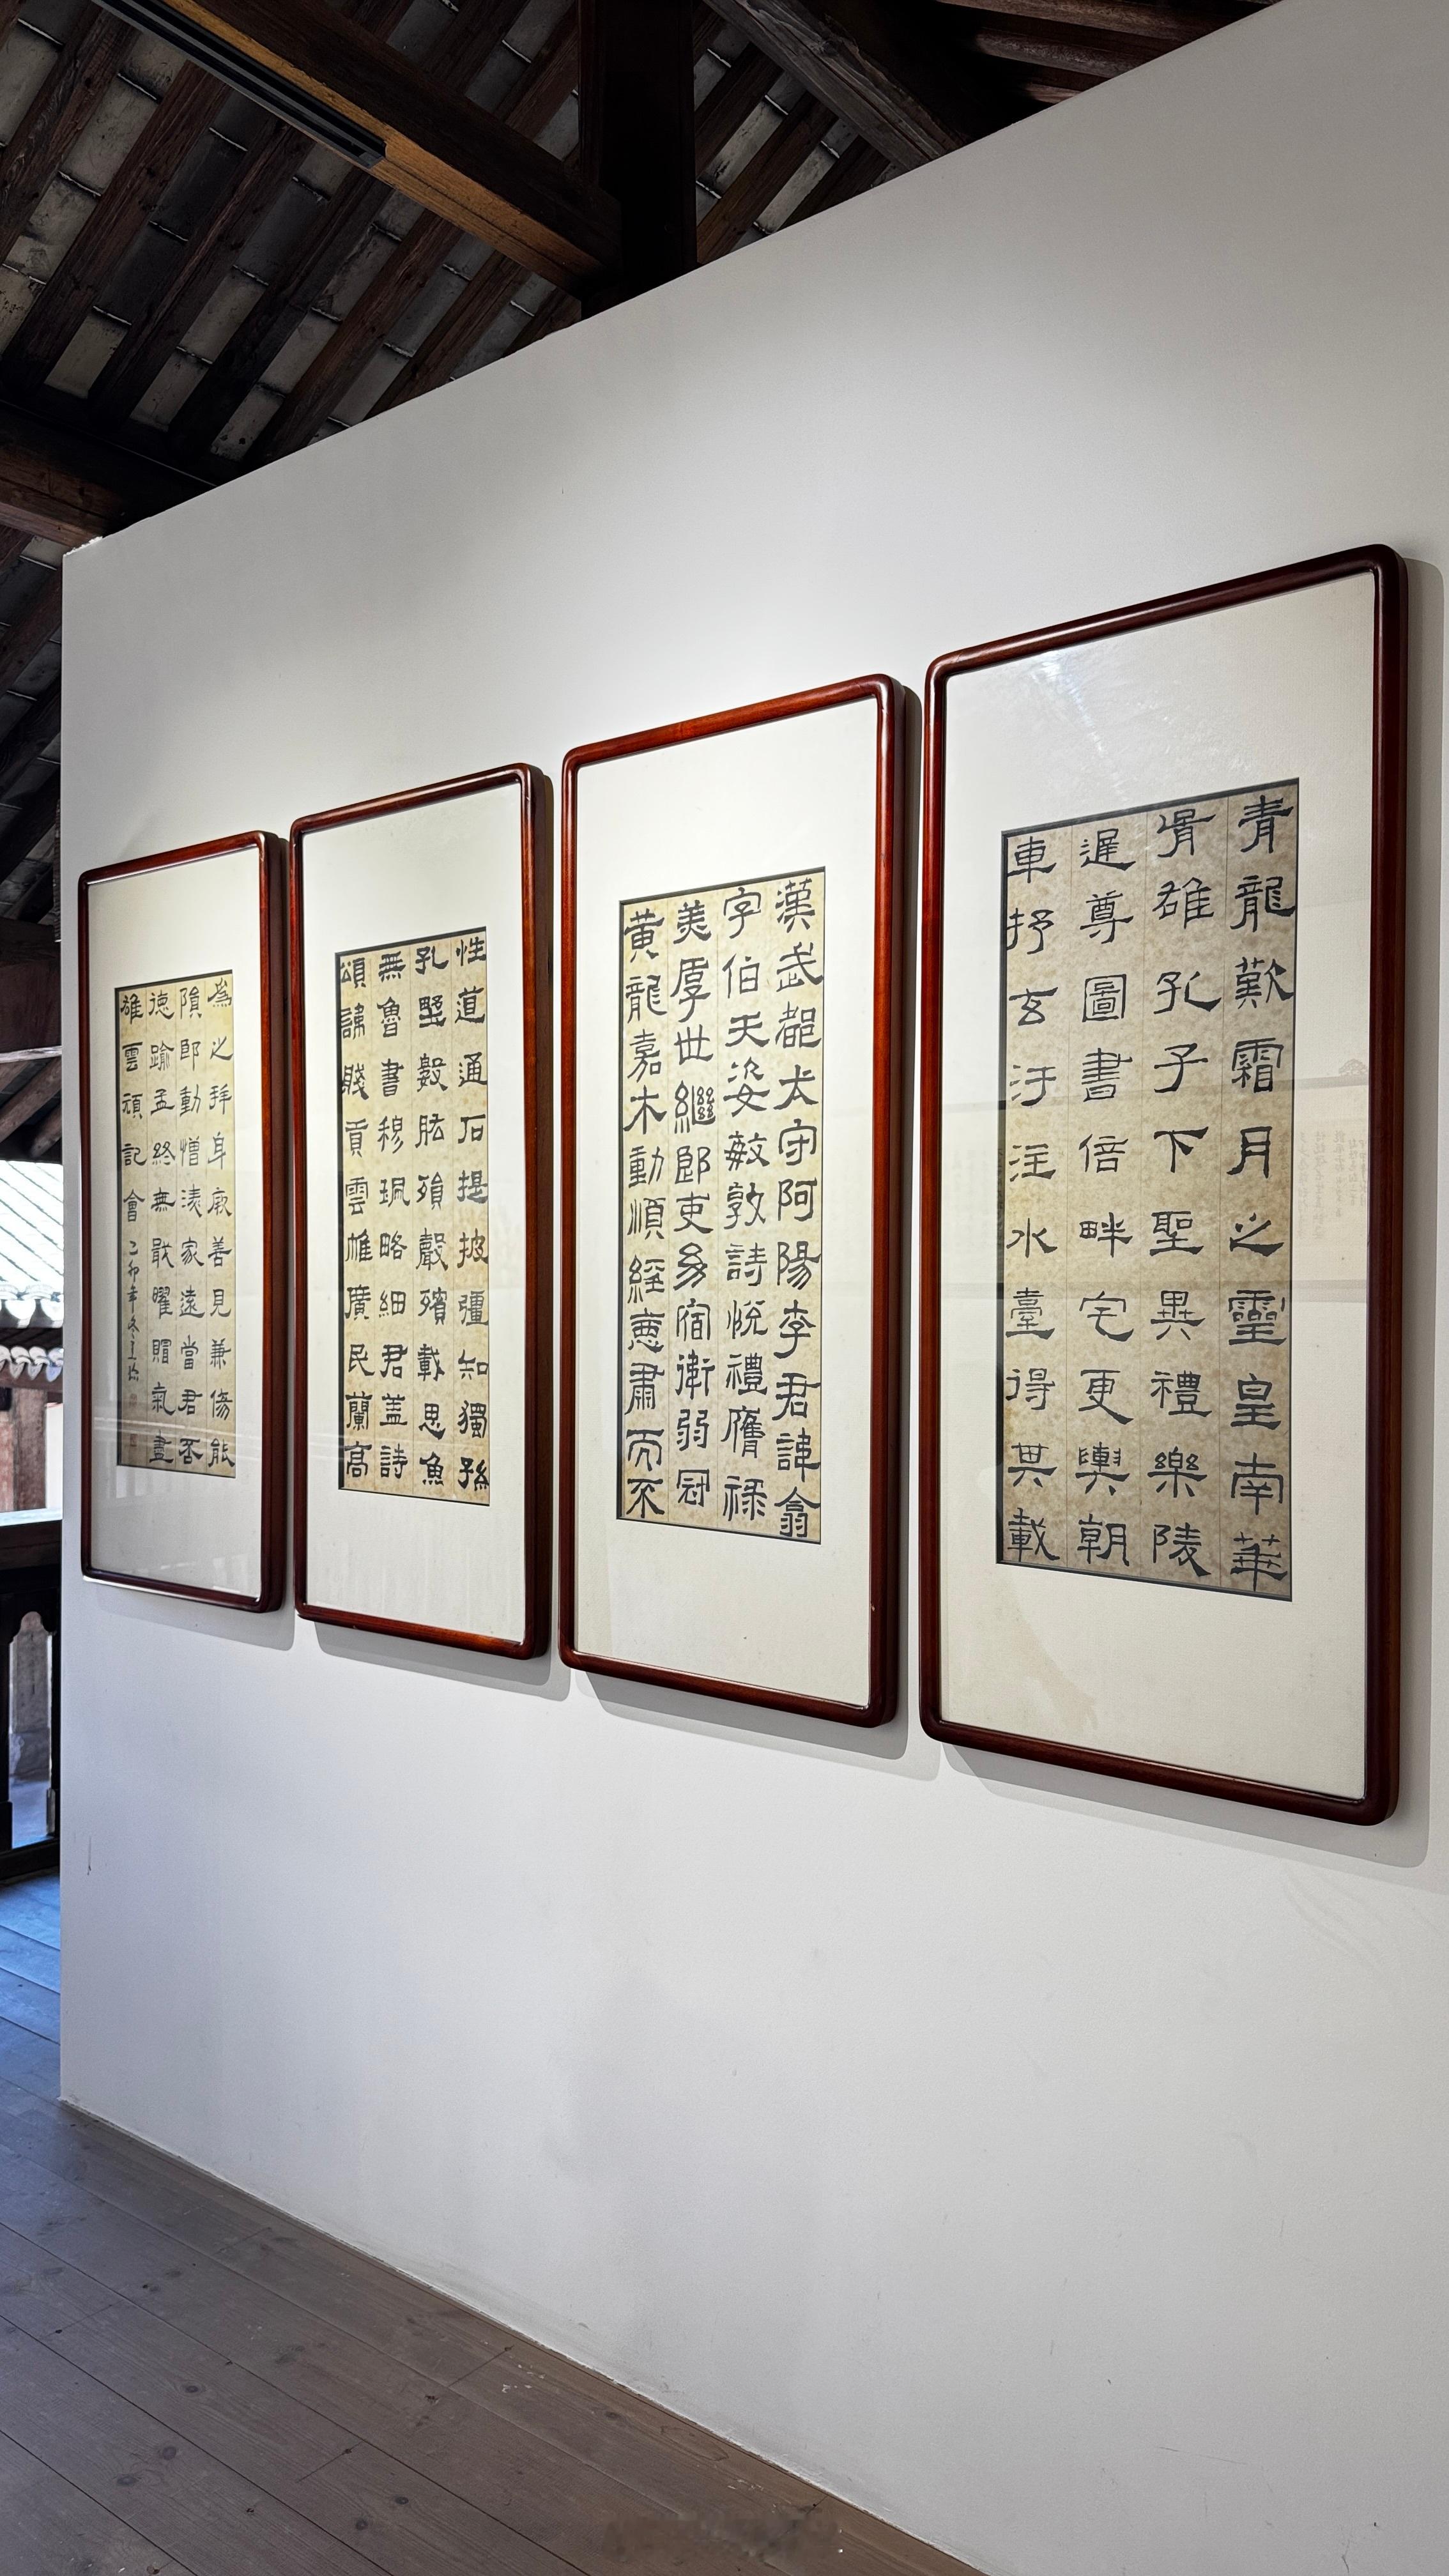 青龍歎霜月之靈皇南華
胥雄孔子下聖異禮樂陵
遲尊圖書倍畔宅更輿朝
車抒玄汙注水臺得其載
漢武都太守阿陽李君諱翕
字伯天姿敦詩悅禮膺祿
美厚世繼郎吏幼宿衛弱冠
黃龍嘉木動順經悳肅而不
性道通石提披彊知獨孫
孔豎數肱殞聲殯載思魚
無魯書穆珮略細君蓋詩
頌誦賤貢雲帷廣民蘭高
為之拜身寂善見兼傷能
隕郎動憎家遠當君否
德踰孟終無敢曜氣盡
雄雲頑記會
己卯年冬